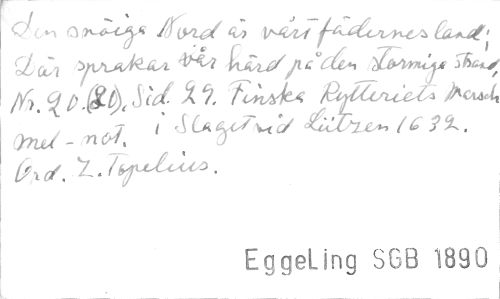 Den snöiga Nord är vårt fädernesland;
Där sprakar vår härd på den stormiga strand,
Nr. 20. (21). Sid. 29. Finska Rytteriets Marsch
mel-not. i Slaget vid Lützen 1632.
Ord. Z. Topelius.
EggeLing SGB 1890